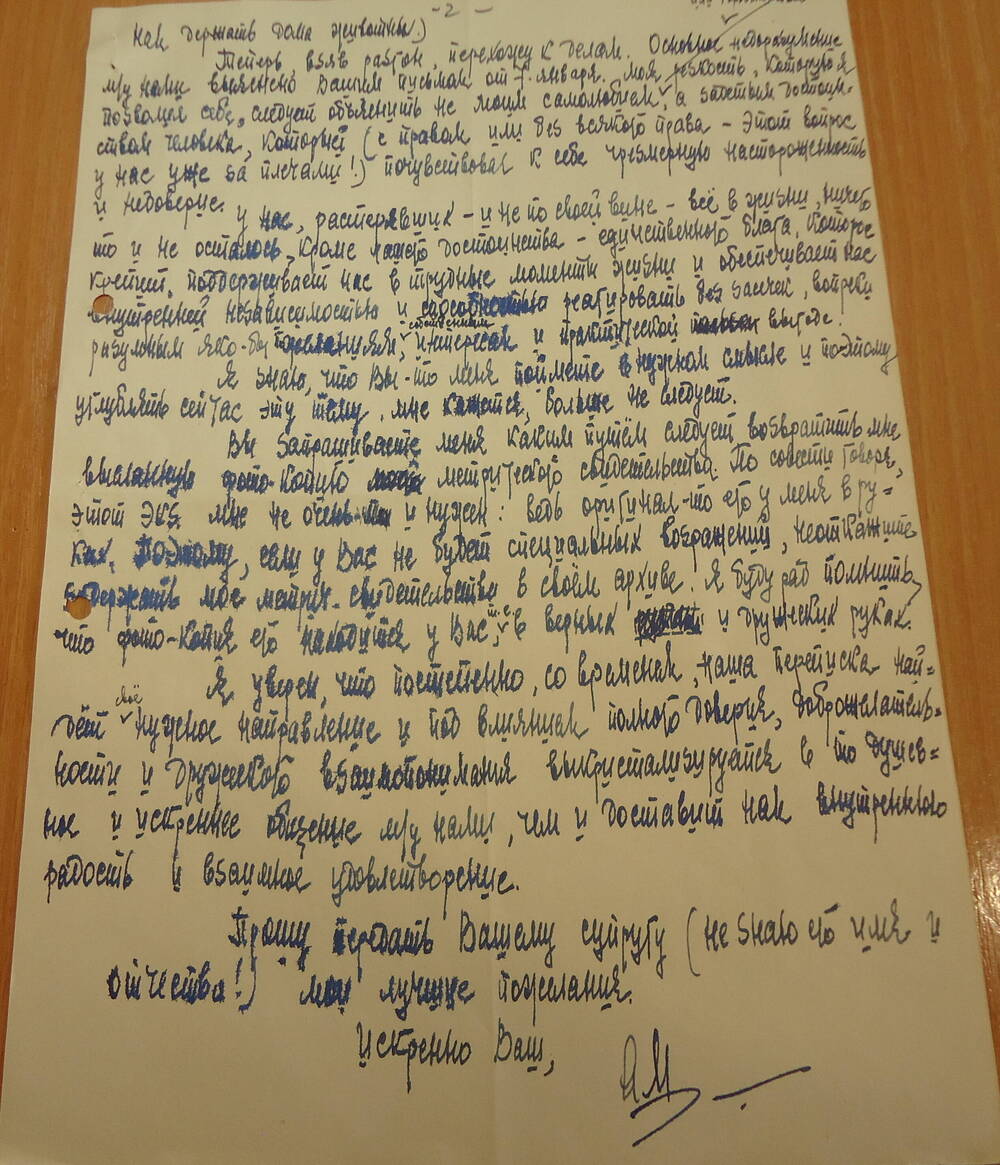 - 2 -
нам держать дома животных.)
Теперь взяв разгон, перехожу к делам. Основное недоразумение
м/у нами выяснено Вашим письмом от 7. января. Моя резкость, которую я
позволил себе, следует объяснить не моим самолюбием, а задетым достоин-
ством человека, который (с правом или без всякого права - этот вопрос
у нас уже за плечами!) почувствовал к себе чрезмерную настороженность
и недоверие.
У нас, растерявших - и не по своей вине - всё в жизни, ничего
то и не осталось, кроме нашего достоинства - единственного блага, которое
крепит, поддерживает нас в трудные моменты жизни и обеспечивает нас
внутренней независимостью и способностью реагировать без заичек, вопреки
разумным яко-бы собственным интересам и практической выгоде.
Я знаю, что Вы-то меня поймете в нужном смысле и поэтому
углублять сейчас эту тему, мне кажется, больше не следует.
Вы запрашиваете меня каким путём следует возвратить мне
высланную фото-копию метрического свидетельства. По совести говоря,
этот экз. мне не очень и нужен: ведь оригинал-то его у меня в ру-
ках. Поэтому, если у Вас не будет специальных возражений, не откажите
содержать мое метрич. свидетельство в своём архиве. Я буду рад помнить,
что фото-копия его находится у Вас, т.е. в верных и дружеских руках.
Я уверен, что постепенно, со временем, наша переписка най-
дёт своё нужное направление и под влиянием полного доверия, доброжелатель-
ности и дружеского взаимопонимания выкристализируется в то душев-
ное и искреннее общение м/у нами, чем и доставит нам внутреннюю
радость и взаимное удовлетворение.
Прошу передать Вашему супругу (не знаю его имя и
отчества!) мои лучшие пожелания.
Искренно Ваш,
АМ